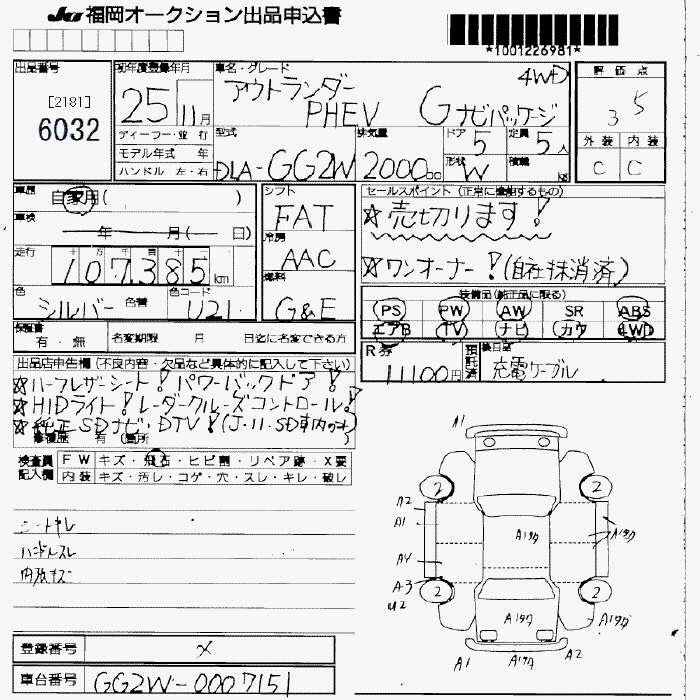 JU 福岡オークション出品申込書
*1001226981*
出品番号
[2181]
6032
初年度登録年月
25 11月
ディーラー・並行
モデル年式 年
ハンドル 左・右
車名・グレード
アウトランダー PHEV Gナビパッケージ 4WD
型式
DLA-GG2W
排気量
2000cc
ドア
5
形状
W
定員
5人
積載
kg
評価点
3 5
外装 内装
C C
車歴
自家用( )
車検
年 月( 日)
走行
十万千百十
107,385km
色
シルバー
色替
色コード
U21
シフト
FAT
冷房
AAC
燃料
G&E
セールスポイント(正常に機能するもの)
☆売切ります!
☆ワンオーナー!(自社抹消済)
装備品(純正品に限る)
PS PW AW SR ABS
エアB TV ナビ カワ 4WD
保証書
有・無
名変期限 月 日迄に名変できる方
R券
11100円
預託済
充電ケーブル
出品店申告欄(不良内容・欠品など具体的に記入して下さい)
☆ハーフレザーシート!パワーバックドア!
☆HIDライト!レーダークルーズコントロール!
☆純正SDナビ・DTV!(J・11・SD車内カギ)
修復歴 有(箇所
検査員記入欄
FW キズ・飛石・ヒビ割・リペア跡・X要
内装 キズ・汚レ・コゲ・穴・スレ・キレ・破レ
シートキレ
ハンドルスレ
内張キズ
A1
2 2
A2
A1
A1タワ
A1タワ
A4
A3
U2
2 2
A1タワ
A1タワ
A1 A1タワ A2
登録番号
メ
車台番号
GG2W-0007151